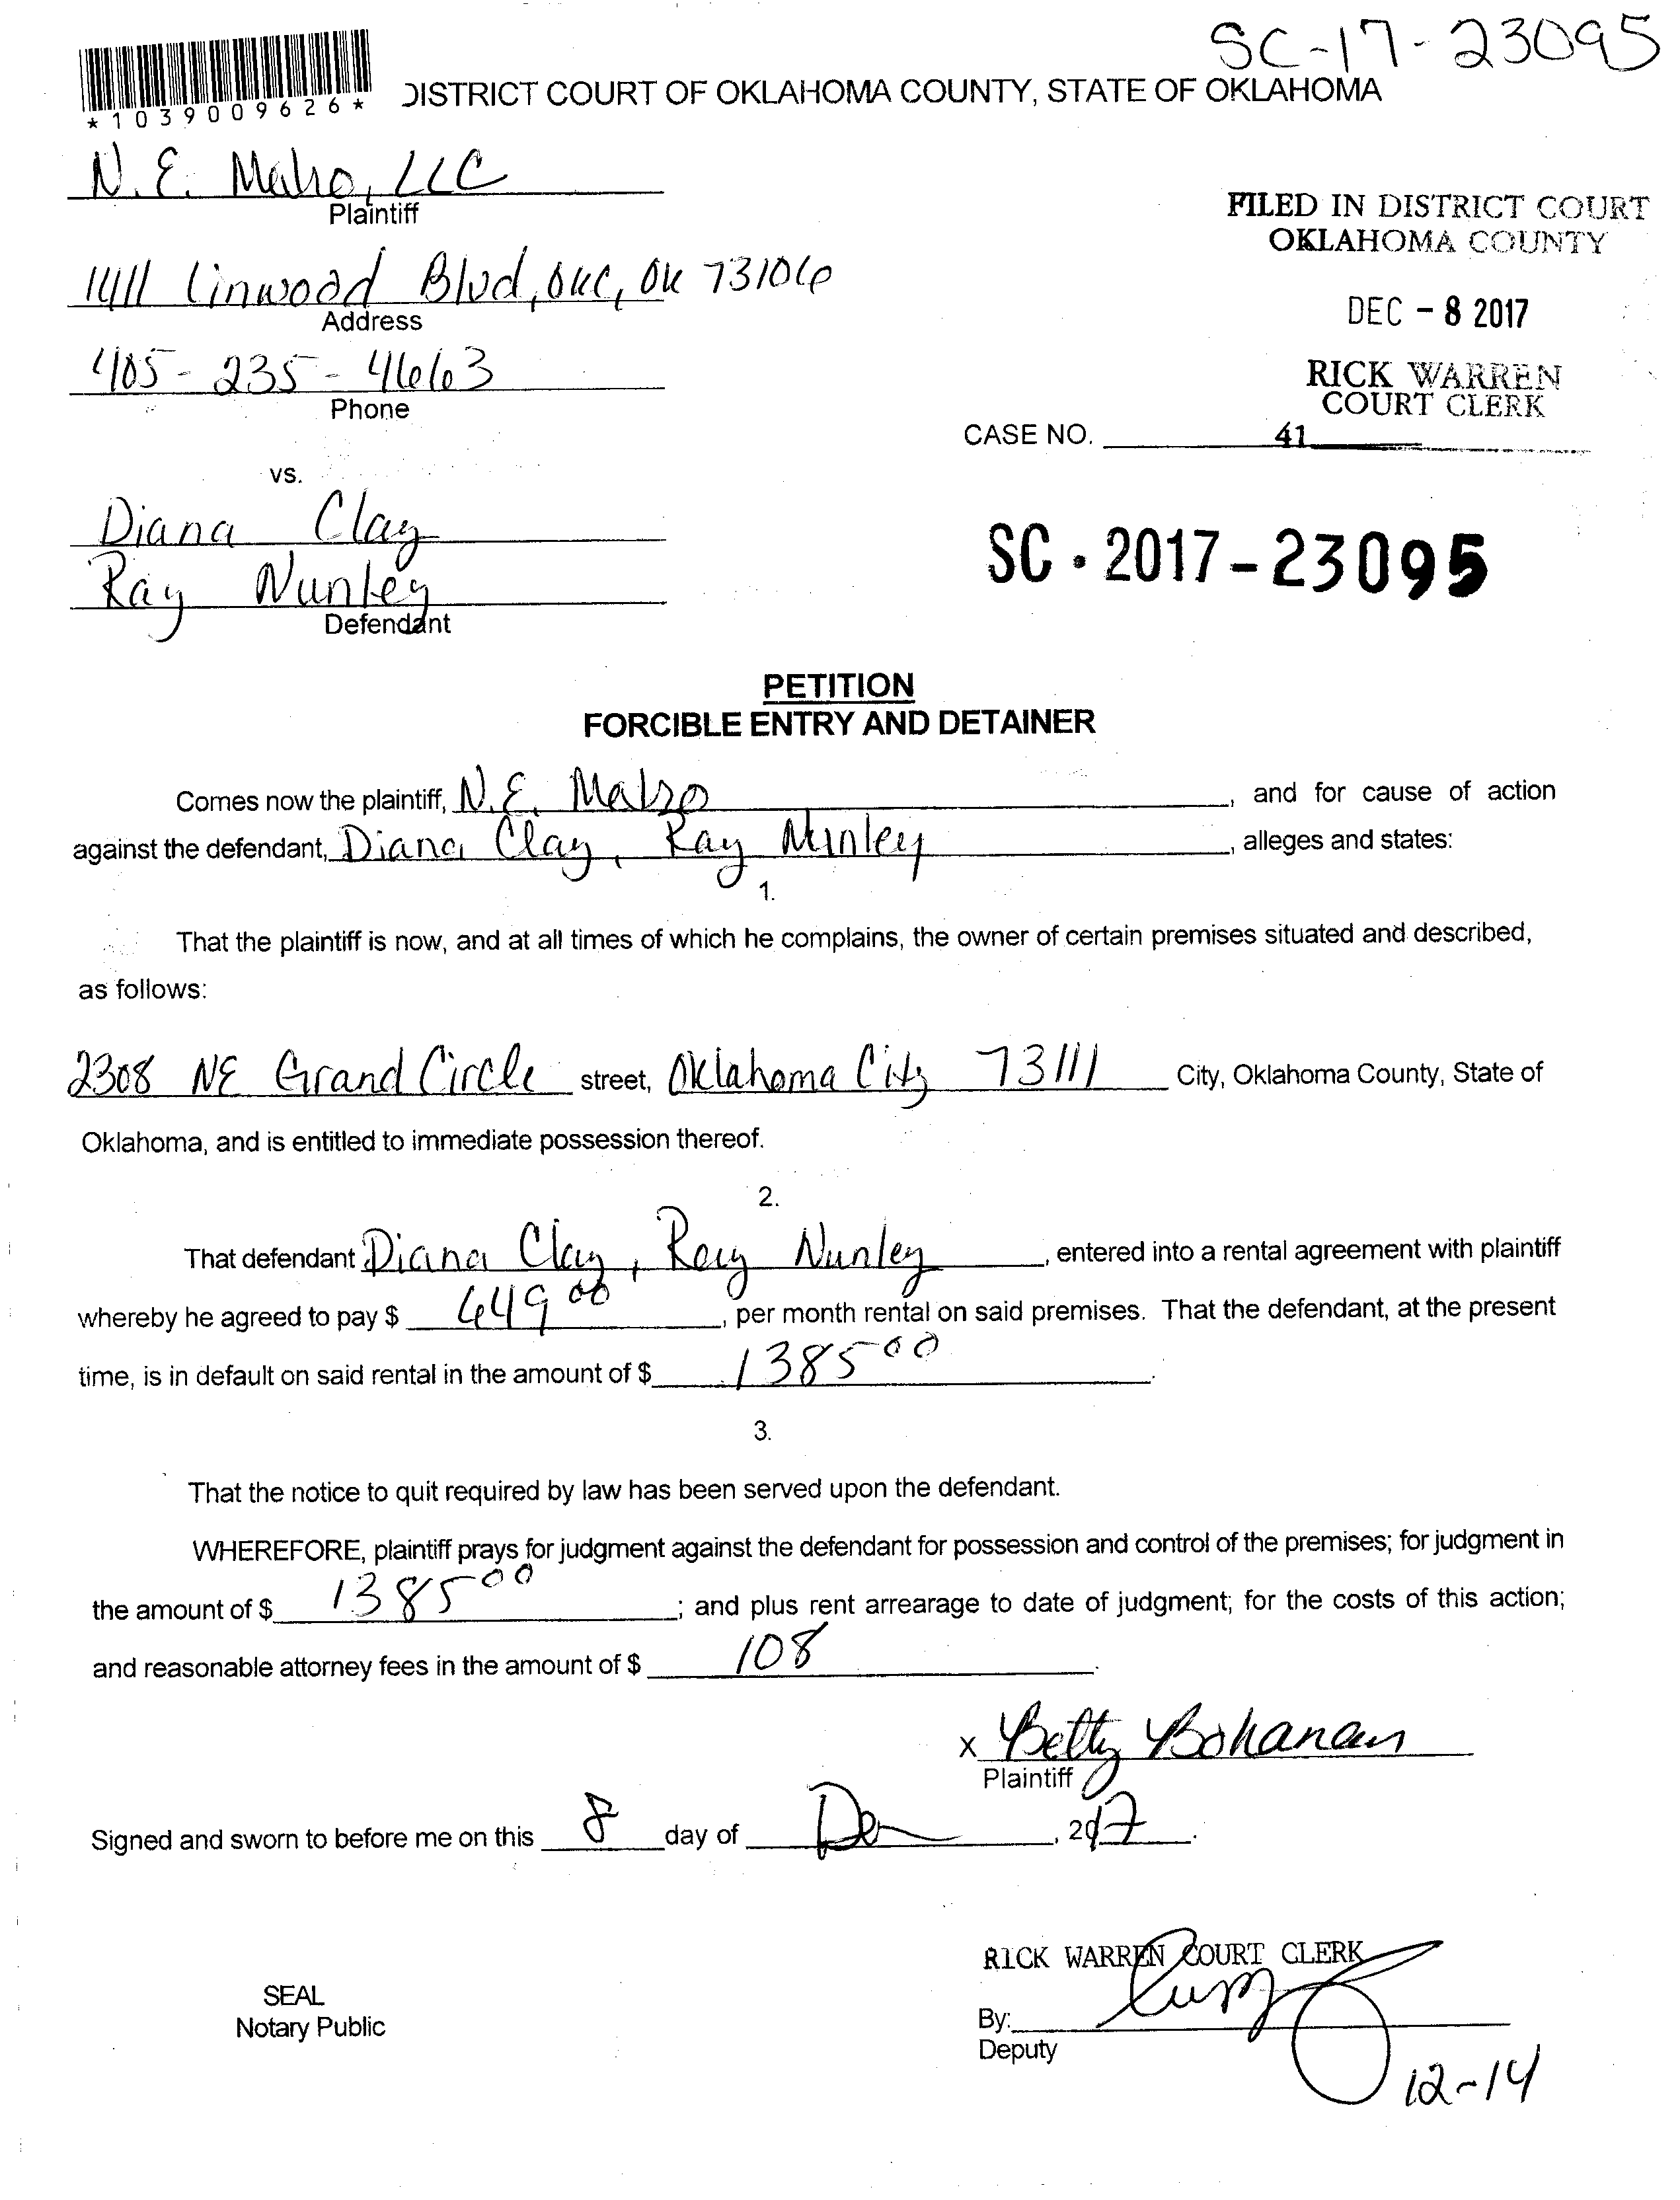 SC-17-23095
*1039009626*
DISTRICT COURT OF OKLAHOMA COUNTY, STATE OF OKLAHOMA
N.E. LLC
Plaintiff
FILED IN DISTRICT COURT
OKLAHOMA COUNTY
1411 Linwood Blvd, OKC, OK 73106
Address
DEC - 8 2017
405-235-4663
Phone
RICK WARREN
COURT CLERK
CASE NO. 41
vs.
Diana Clay
Ray Nunley
Defendant
SC - 2017-23095
PETITION
FORCIBLE ENTRY AND DETAINER
Comes now the plaintiff, N.E. , and for cause of action
against the defendant, Diana Clay, Ray Nunley, alleges and states:
1.
That the plaintiff is now, and at all times of which he complains, the owner of certain premises situated and described,
as follows:
2308 NE Grand Circle street, Oklahoma City 73111 City, Oklahoma County, State of
Oklahoma, and is entitled to immediate possession thereof.
2.
That defendant Diana Clay, Ray Nunley, entered into a rental agreement with plaintiff
whereby he agreed to pay $ 649 00, per month rental on said premises. That the defendant, at the present
time, is in default on said rental in the amount of $ 1385 00.
3.
That the notice to quit required by law has been served upon the defendant.
WHEREFORE, plaintiff prays for judgment against the defendant for possession and control of the premises; for judgment in
the amount of $ 1385 00; and plus rent arrearage to date of judgment; for the costs of this action;
and reasonable attorney fees in the amount of $ 108.
x Betty Bohanan
Plaintiff
Signed and sworn to before me on this 8 day of , 2017.
RICK WARREN COURT CLERK
SEAL
Notary Public
By:
Deputy
12-14